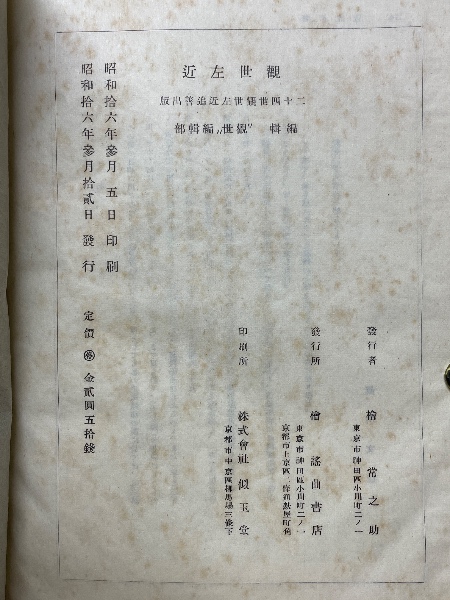 觀世左近
二十四世觀世左近追善出版
編輯 〝觀世〟編輯部
昭和拾六年參月五日印刷
昭和拾六年參月拾貳日發行
定價 金貳圓五拾錢
發行者 檜常之助
東京市神田區小川町二ノ一
發行所 檜謠曲書店
東京市神田區小川町二ノ一
京都市上京區二條通麩屋町角
印刷所 株式會社似玉堂
京都市中京區柳馬場三條下